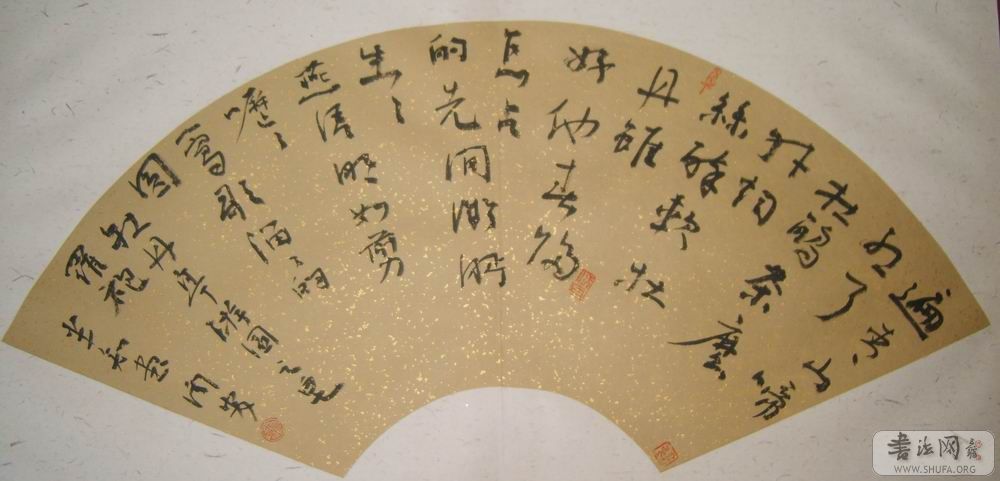 遍青山啼
红了
杜鹃荼蘼
外烟
絲醉軟牡
丹雖
好他春歸
怎占
的先闲凝眄
生生
燕语明如剪
嚦嚦
鶯歌溜溜的
圆
牡丹亭游园之皂
羅袍
书法网
WWW.SHUFA.ORG